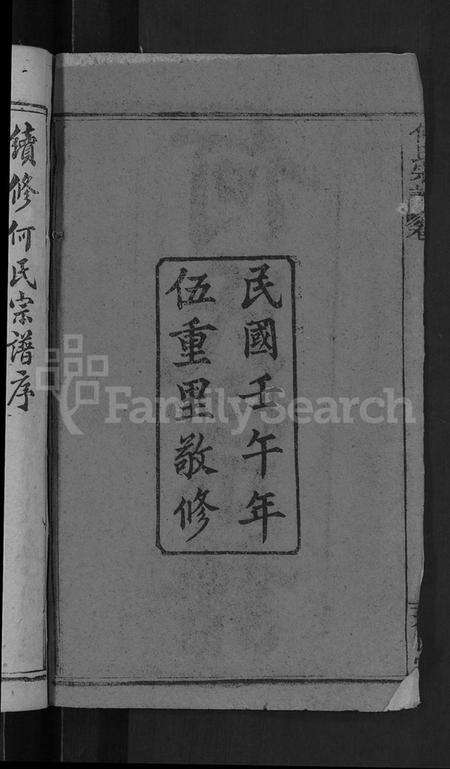 民國壬午年
伍重里敬修
續修何民宗譜序
FamilySearch